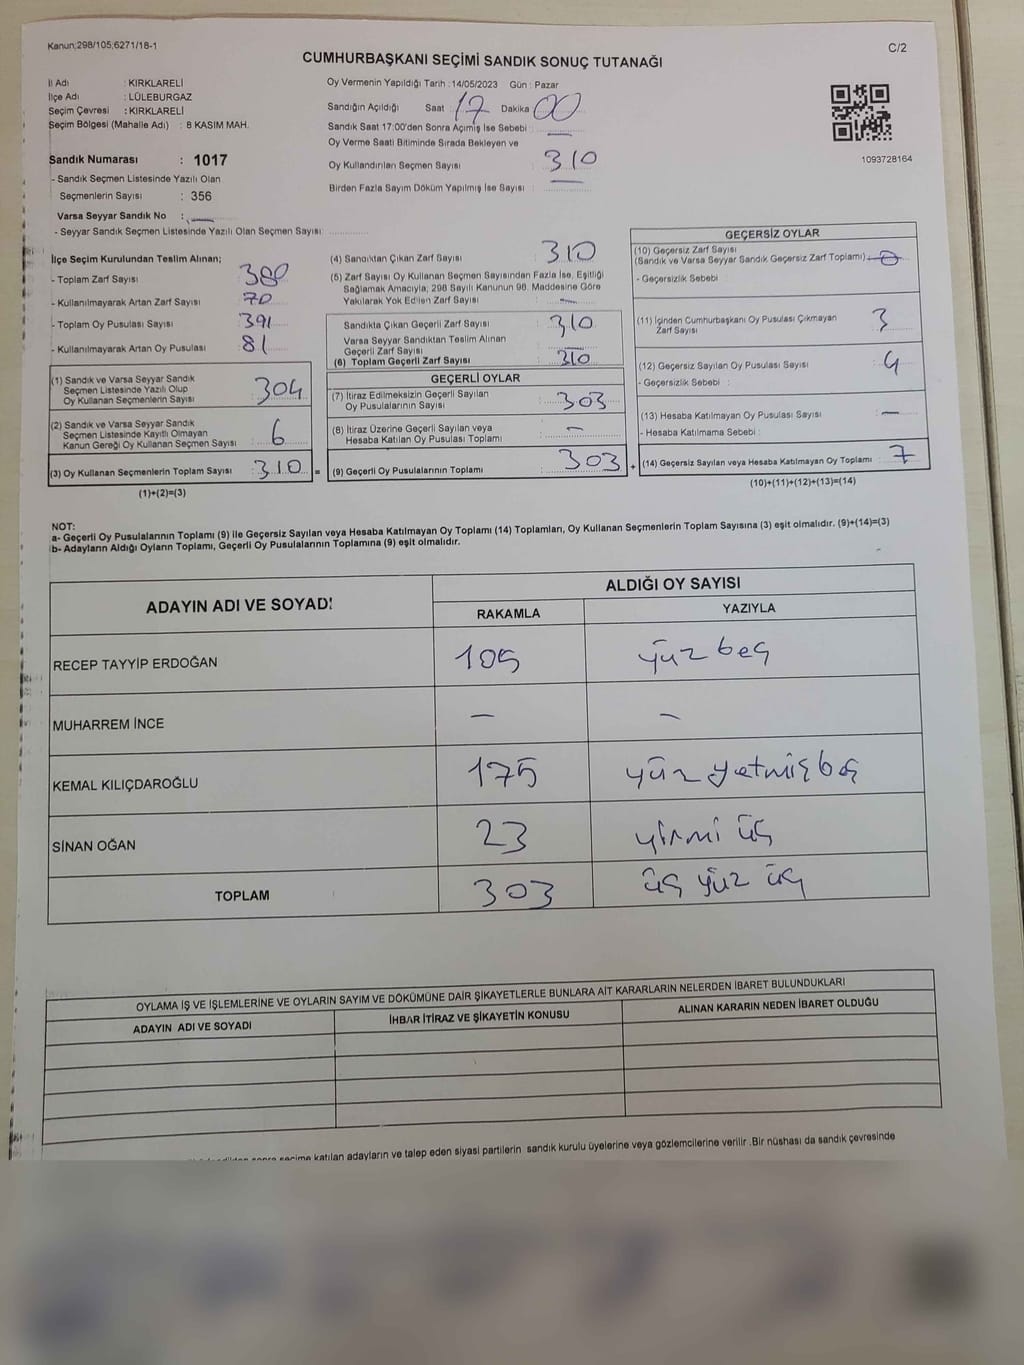 Kanun;298/105;6271/18-1
C/2
CUMHURBAŞKANI SEÇİMİ SANDIK SONUÇ TUTANAĞI
İl Adı : KIRKLARELİ
İlçe Adı : LÜLEBURGAZ
Seçim Çevresi : KIRKLARELİ
Seçim Bölgesi (Mahalle Adı) : 8 KASIM MAH.
Sandık Numarası : 1017
- Sandık Seçmen Listesinde Yazılı Olan
Seçmenlerin Sayısı : 356
Varsa Seyyar Sandık No : —
- Seyyar Sandık Seçmen Listesinde Yazılı Olan Seçmen Sayısı:
Oy Vermenin Yapıldığı Tarih : 14/05/2023 Gün : Pazar
Sandığın Açıldığı Saat : 17 Dakika : 00
Sandık Saat 17:00'den Sonra Açımış İse Sebebi : —
Oy Verme Saati Bitiminde Sırada Bekleyen ve
Oy Kullandırılan Seçmen Sayısı : 310
Birden Fazla Sayım Döküm Yapılmış İse Sayısı : —
1093728164
İlçe Seçim Kurulundan Teslim Alınan;
- Toplam Zarf Sayısı : 380
- Kullanılmayarak Artan Zarf Sayısı : 70
- Toplam Oy Pusulası Sayısı : 391
- Kullanılmayarak Artan Oy Pusulası : 81
(1) Sandık ve Varsa Seyyar Sandık
Seçmen Listesinde Yazılı Olup
Oy Kullanan Seçmenlerin Sayısı : 304
(2) Sandık ve Varsa Seyyar Sandık
Seçmen Listesinde Kayıtlı Olmayan
Kanun Gereği Oy Kullanan Seçmen Sayısı : 6
(3) Oy Kullanan Seçmenlerin Toplam Sayısı : 310 =
(1)+(2)=(3)
(4) Sandıktan Çıkan Zarf Sayısı : 310
(5) Zarf Sayısı Oy Kullanan Seçmen Sayısından Fazla İse, Eşitliği
Sağlamak Amacıyla; 298 Sayılı Kanunun 98. Maddesine Göre
Yakılarak Yok Edilen Zarf Sayısı : —
Sandıkta Çıkan Geçerli Zarf Sayısı : 310
Varsa Seyyar Sandıktan Teslim Alınan
Geçerli Zarf Sayısı : —
(6) Toplam Geçerli Zarf Sayısı : 310
GEÇERLİ OYLAR
(7) İtiraz Edilmeksizin Geçerli Sayılan
Oy Pusulalarının Sayısı : 303
(8) İtiraz Üzerine Geçerli Sayılan veya
Hesaba Katılan Oy Pusulası Toplamı : —
(9) Geçerli Oy Pusulalarının Toplamı : 303 +
GEÇERSİZ OYLAR
(10) Geçersiz Zarf Sayısı
(Sandık ve Varsa Seyyar Sandık Geçersiz Zarf Toplamı) : 0
- Geçersizlik Sebebi :
(11) İçinden Cumhurbaşkanı Oy Pusulası Çıkmayan
Zarf Sayısı : 3
(12) Geçersiz Sayılan Oy Pusulası Sayısı : 4
- Geçersizlik Sebebi :
(13) Hesaba Katılmayan Oy Pusulası Sayısı : —
- Hesaba Katılmama Sebebi :
(14) Geçersiz Sayılan veya Hesaba Katılmayan Oy Toplamı : 7
(10)+(11)+(12)+(13)=(14)
NOT:
a- Geçerli Oy Pusulalarının Toplamı (9) ile Geçersiz Sayılan veya Hesaba Katılmayan Oy Toplamı (14) Toplamları, Oy Kullanan Seçmenlerin Toplam Sayısına (3) eşit olmalıdır. (9)+(14)=(3)
b- Adayların Aldığı Oyların Toplamı, Geçerli Oy Pusulalarının Toplamına (9) eşit olmalıdır.
ADAYIN ADI VE SOYADI ALDIĞI OY SAYISI
RAKAMLA YAZIYLA
RECEP TAYYİP ERDOĞAN 105 yüz beş
MUHARREM İNCE — —
KEMAL KILIÇDAROĞLU 175 yüz yetmiş beş
SİNAN OĞAN 23 yirmi üç
TOPLAM 303 üç yüz üç
OYLAMA İŞ VE İŞLEMLERİNE VE OYLARIN SAYIM VE DÖKÜMÜNE DAİR ŞİKAYETLERLE BUNLARA AİT KARARLARIN NELERDEN İBARET BULUNDUKLARI
ADAYIN ADI VE SOYADI İHBAR İTİRAZ VE ŞİKAYETİN KONUSU ALINAN KARARIN NEDEN İBARET OLDUĞU
sonra seçime katılan adayların ve talep eden siyasi partilerin sandık kurulu üyelerine veya gözlemcilerine verilir .Bir nüshası da sandık çevresinde